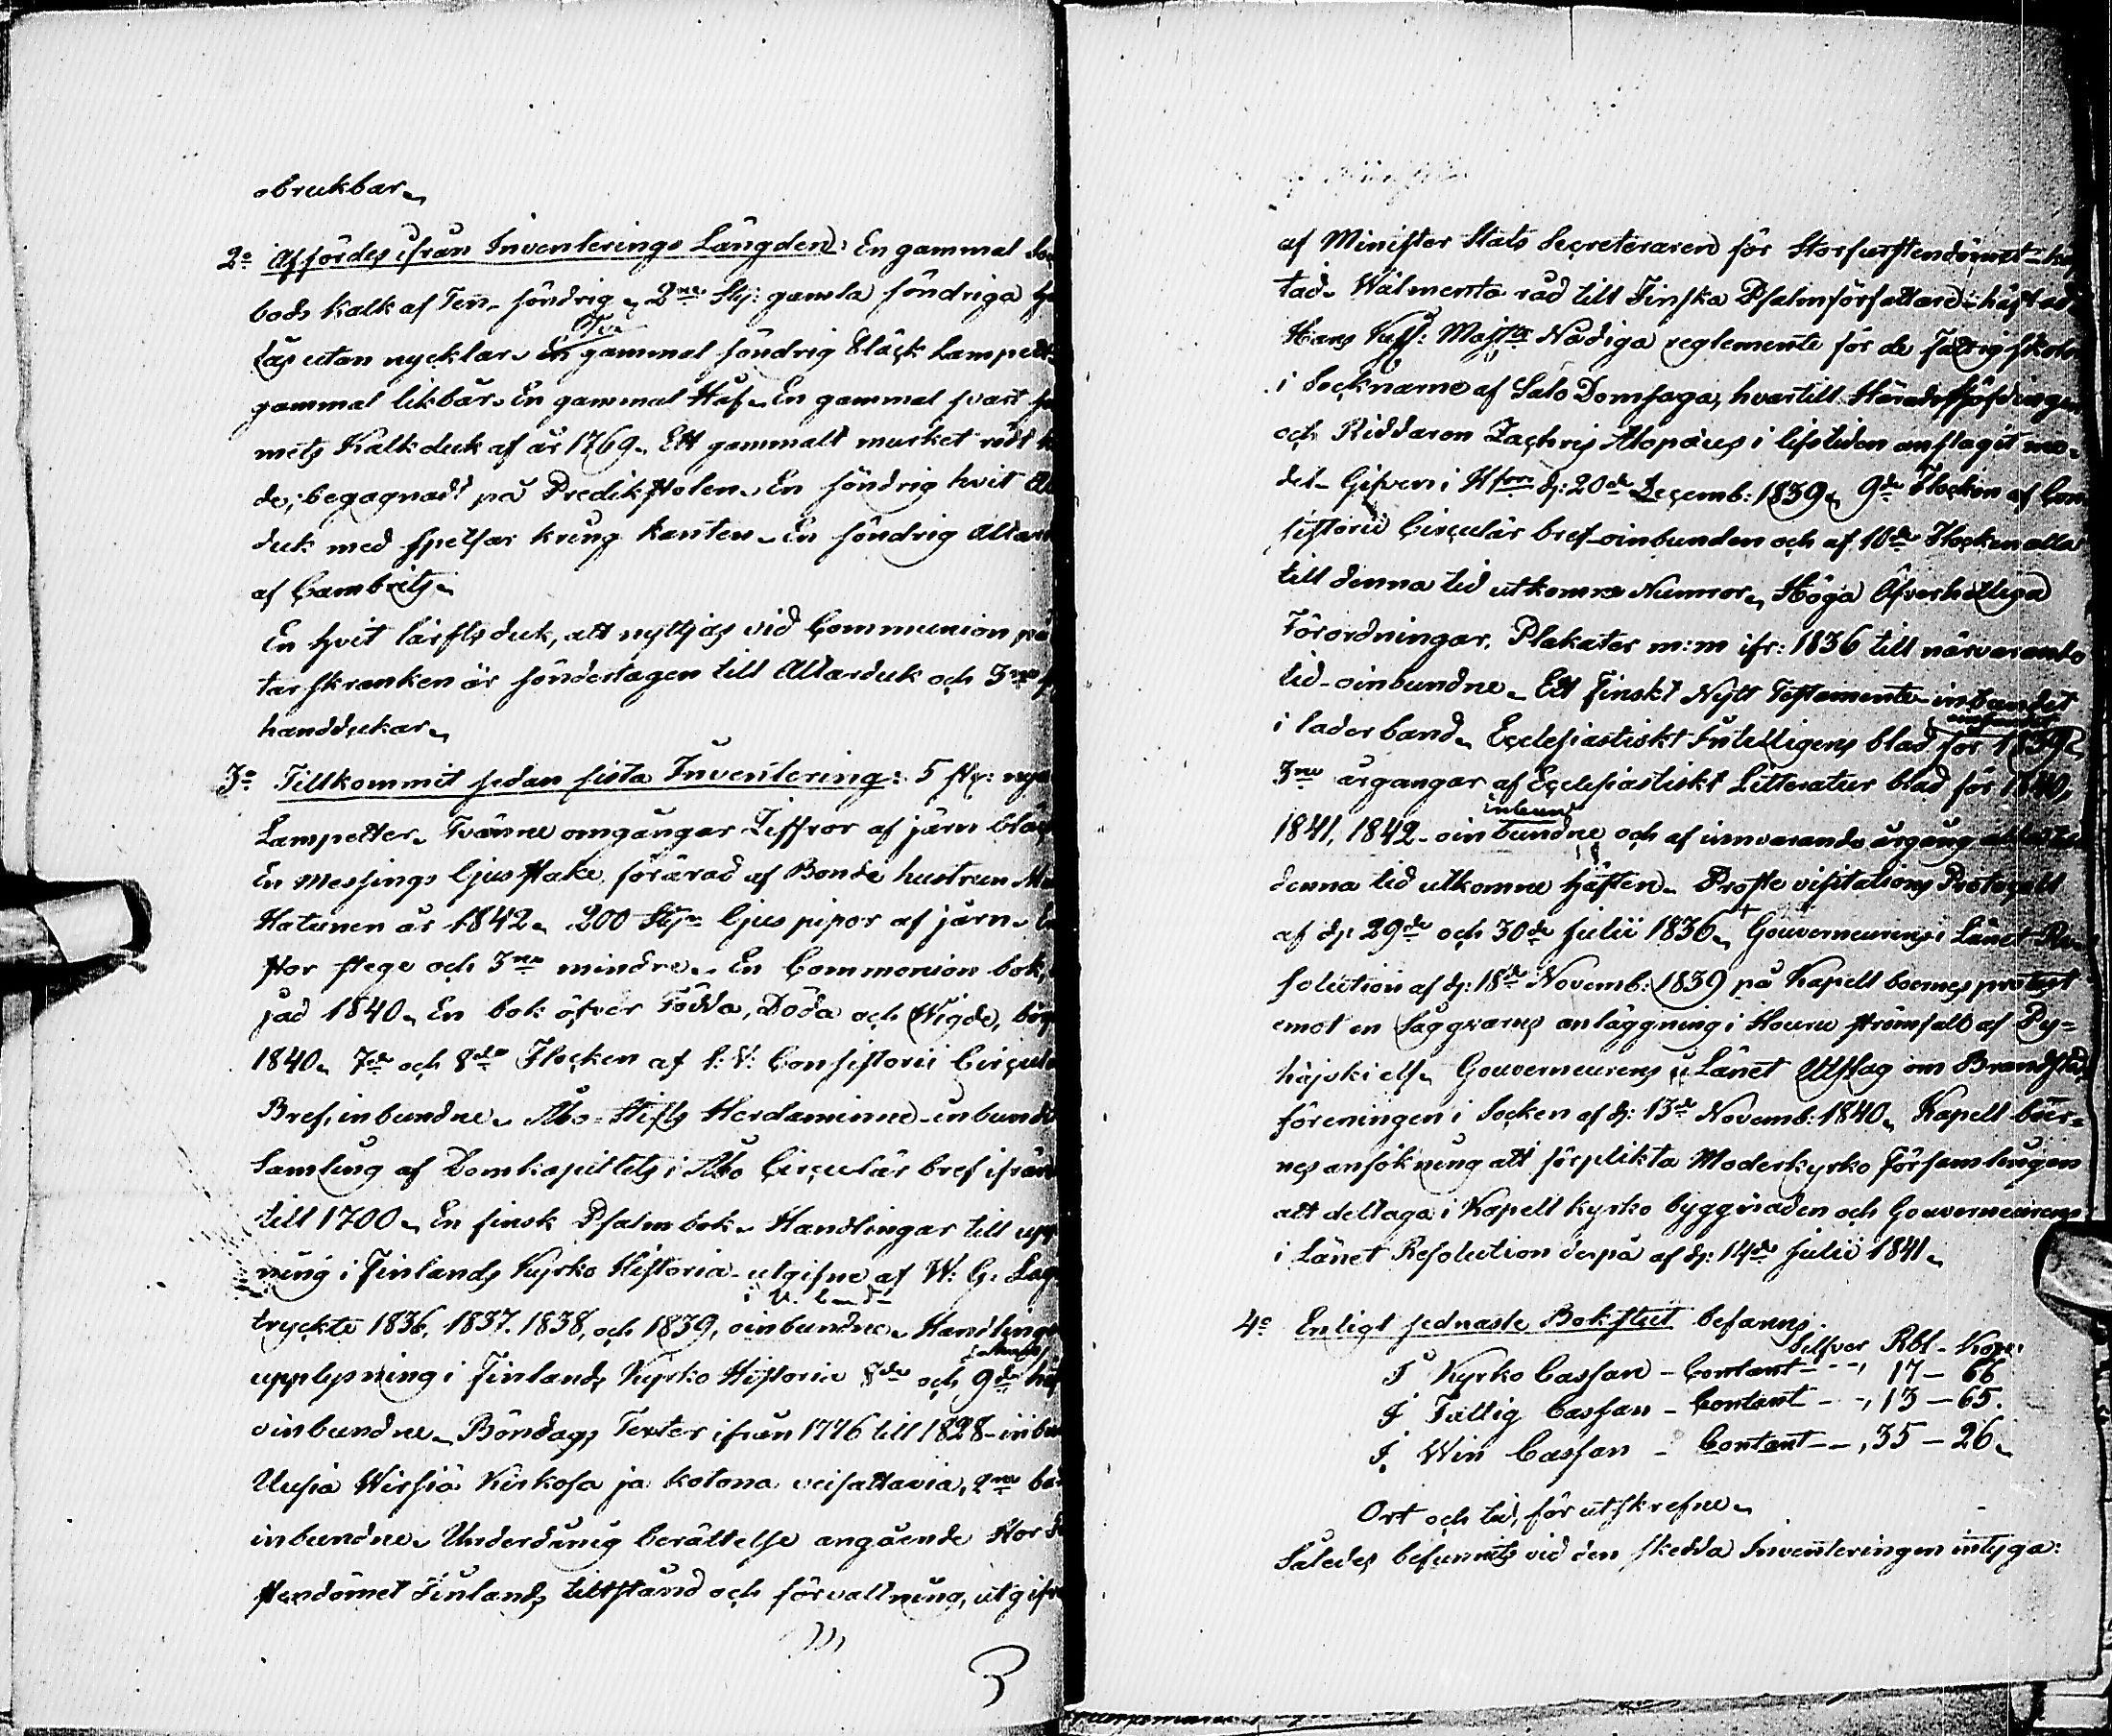 obrukbar.
2o Affördes ifrån Inventerings Längden: En gammal
bods kalk af Ten, söndrig, 2ne Styc: gamla söndriga
lås utan nycklar. En gammal söndrig bläck Lampett
Två
gammal likbår. En gammal Håf. En gammal svart
mets Kalkduk af år 1769. Ett gammalt murket rödt
de, begagnadt på Predikstolen. En söndrig hvit
duk med spetsar kring kanten. En söndrig Altar
af Cambrits.
En hvit lärfts duk, att nyttjas vid Communion på
tarskranken är söndertagen till Altarduk och 3ne
handdukar.
3o Tillkommit sedan sista Inventering: 5 st: nya
Lampetter. Tvänne omgångar Ziffror af järn bläck
En Messings ljusstake, förärad af Bonde hustrun
Hatunen år 1842. 200 Styc ljuspipor af järn.
stor stege och 3ne mindre. En Communion bok,
jad 1840. En bok öfver Födda, Döda och Wigde,
1840. 7de och 8de Flocken af l: V: Consistorii Circulär
Bref, inbundne. Åbo-Stifts Herdaminne inbundet
Samling af Domkapitlets i Åbo Circulär bref ifrån
till 1700. En finsk Psalmbok. Handlingar till upp
ning i Finlands Kyrko Historia utgifne af W: G: Lag
tryckte 1836, 1837, 1838, och 1839, oinbundne. Handlingar
upplysning i Finlands Kyrko Historia 8de och 9de
oinbundne. Böndags Texter ifrån 1776 till 1828 inbun
Uusia Wirsiä Kirkosa ja kotona veisattavia, 2ne
inbundne. Underdånig berättelse angående Stor
stendömet Finlands tillstånd och förvaltning, utgifven
3
af Minister Stats Secreteraren för Storfurstendömet
tad. Wälmenta råd till Finska Psalmförfattare häftad.
Hans Kejs: Majts Nådiga reglemente för de fattigskolor
i Socknarne af Salo Domsaga, hvartill Häradshöfdingen
och Riddaren Zachris Alopæus i lifstiden anslagit me-
del. Gifven i Hfors d: 20de Decemb: 1839. 9de Flocken af Con
sistorii Circulär bref oinbunden och af 10de Flocken alla
till denna tid utkomna Numror. Höga Öfverhetliga
Förordningar, Plakater m:m ifr: 1836 till närvarande
tid oinbundne. Ett finskt Nytt Testamente inbundet
i laderband. Ecclesiastiskt Intelligens blad för 1839.
3ne årgångar af Ecclesiastiskt Litteratur blad för 1840,
1841, 1842 oinbundne och af innvarande årgång
denna tid utkomne häften. Proste visitations Protocoll
af d: 29de och 30de Julii 1836. Gouverneurens i Länet Re-
solution af d: 18de Novemb: 1839 på Kapell boernes protest
emot en Sågqvarns anläggning i Houru strömfall af Py=
häjoki elf. Gouverneurens i Länet Utslag om Brandstods
föreningen i Socken af d: 13de Novemb: 1840. Kapell boer-
nes ansökning att förplikta Moderkyrko Församlingen
att deltaga i Kapell kyrko byggnaden och Gouverneurens
i Länet Resolution derpå af d: 14de Julii 1841.
4o Enligt sednaste Bokslut befanns:
Silfver Rbl - Kop:
I Kyrko Cassan - Contant - - 17 - 66
I Fattig Cassan - Contant - - 13 - 65.
I Win Cassan - Contant - - 35 - 26.
Ort och tid, för utskrefne.
Således befunnits vid den skedda Inventeringen intyga: